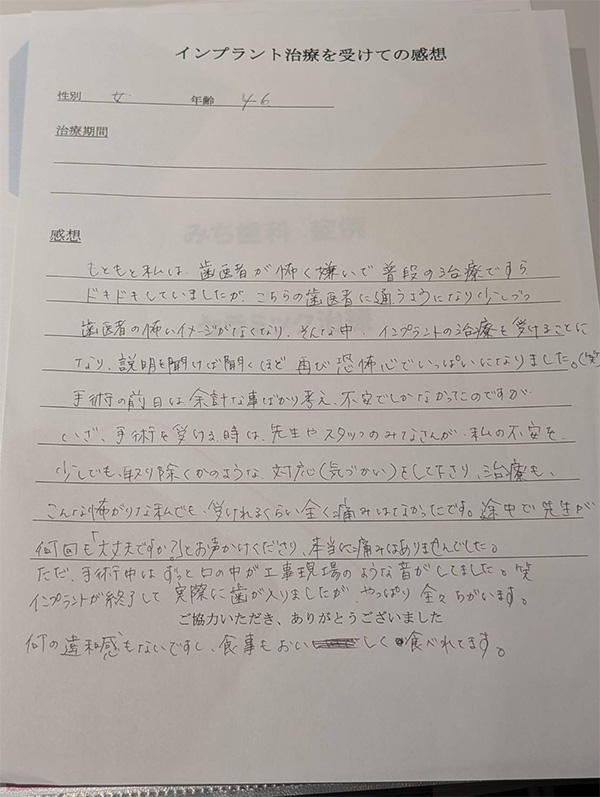 インプラント治療を受けての感想
性別 女 年齢 46
治療期間
感想
もともと私は、歯医者が怖く嫌いで普段の治療ですら
ドキドキしていましたが、こちらの歯医者に通うようになり少しづつ
歯医者の怖いイメージがなくなり、そんな中、インプラントの治療を受けることに
なり、説明を聞けば聞くほど再び恐怖心でいっぱいになりました。(笑)
手術の前日は余計な事ばかり考え、不安でしかなかったのですが
いざ、手術を受ける時は、先生やスタッフのみなさんが、私の不安を
少しでも取り除くかのような対応(気づかい)をして下さり、治療も、
こんな怖がりな私でも、受けれるくらい全く痛みはなかったです。途中で先生が
何回も「大丈夫ですか?」とお声がけくださり、本当に痛みはありませんでした。
ただ、手術中はずっと口の中が工事現場のような音がしてました。笑
インプラントが終了して実際に歯が入りましたが、やっぱり全々ちがいます。
ご協力いただき、ありがとうございました
何の違和感もないですし、食事もおいしく食べれてます。